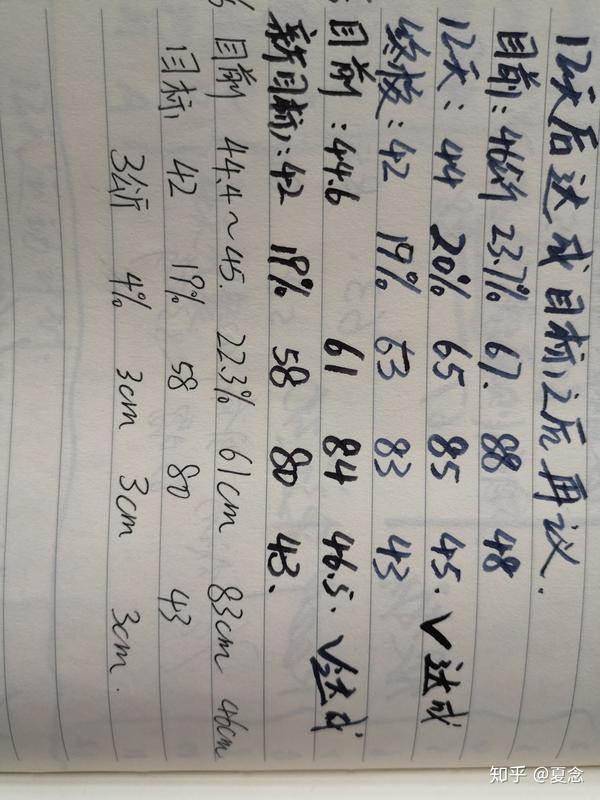 12天后达成目标之后再议.
目前: 46公斤 23.7% 67. 88 48
12天: 44 20% 65 85 45. √达成
终极: 42 19% 63 83 43
目前: 44.6 61 84 46.5. √达成
新目标: 42 19% 58 80 43.
目前 44.4~45. 22.3% 61cm 83cm 46cm
目标 42 19% 58 80 43
3公斤 4% 3cm 3cm 3cm.
知乎 @夏念